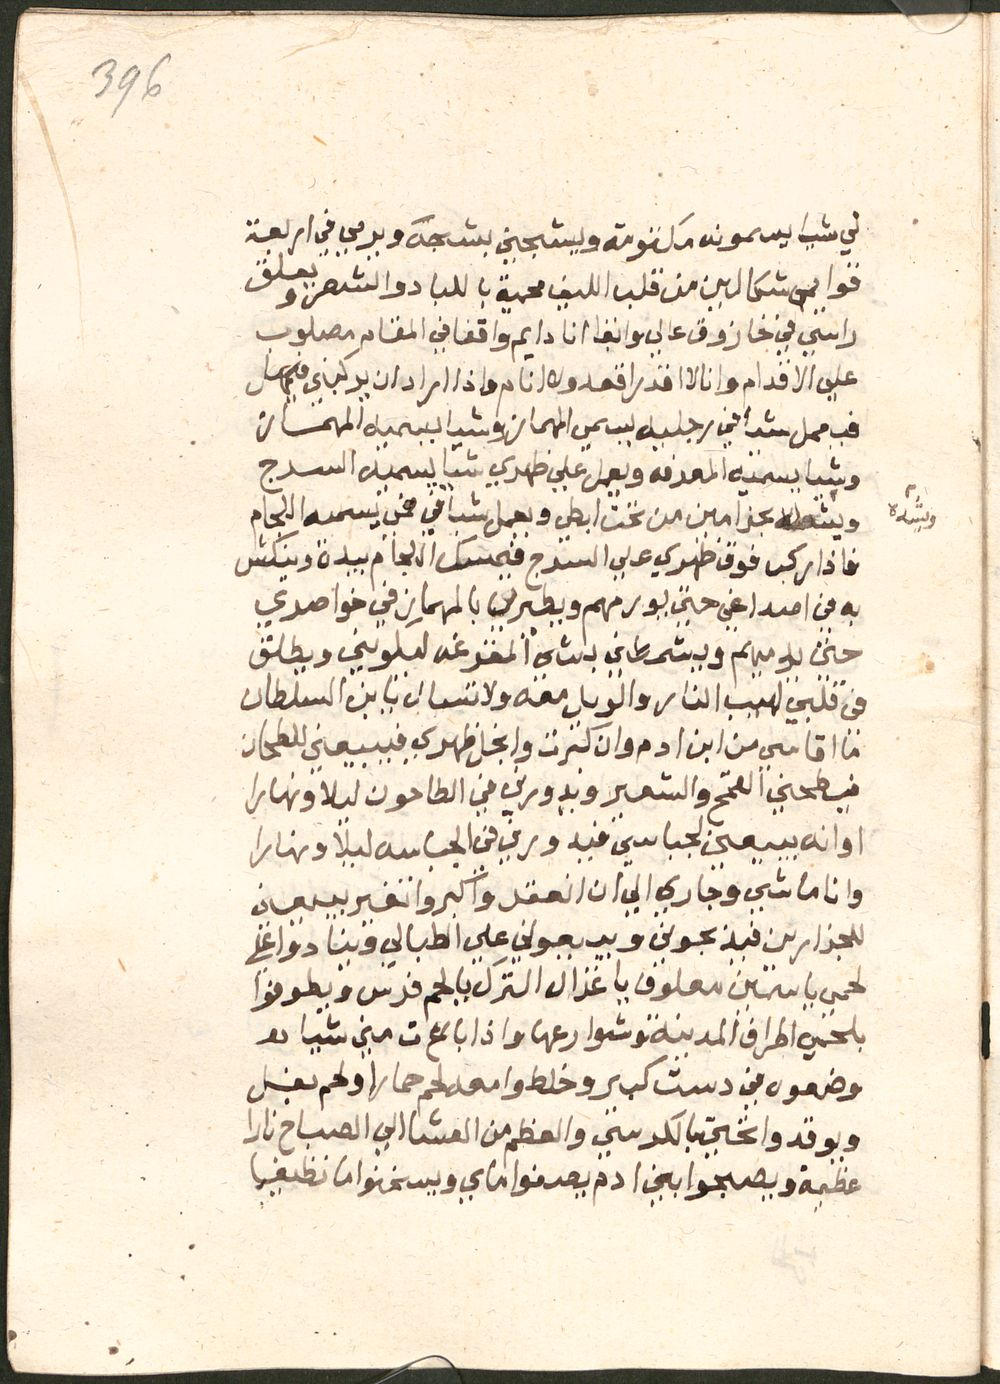 396
لي شيا يسمونه مكنومة ويشبحني بشبحه ويرمي في اربعة
قوايمي شكالين من قلب الليف محمية باللباد والشعر ويعلق
راسي في خازوق عالي وانا دايم واقفا في المقام مصلوب
علي الاقدام وانا لا اقدر اقعد ولا انام واذا اراد ان يركبني
فيعمل شيا في رجليه يسمي المهماز وشيا يسميه المهماز
وشيا يسميه المعرفه ويعمل علي ظهري شيا يسميه السرج
ويشده بحزامين من تحت ابطي ويعمل شيا في فمي يسمه اللجام
ويشده
فاذا ركب فوق ظهري علي السرج فيمسك اللجام بيده وينكش
به في اصداغي حتي يورمهم ويطيرني بالمهماز في خواصري
حتي يدميهم ويشرطني بشيء المقرعه ليلويني ويطلق
في قلبي لهيب النار والويل معه ولا تسال يا بن السلطان
ما اقاسي من ابن ادم وان كبرت وانحل ظهري فيبيعني للطحان
فيطحني القمح والشعير ويدورني في الطاحون ليلا ونهارا
او انه يبيعني لجباسي فيدورني في الجباسه ليلا ونهارا
وانا ماشي وجاري الي ان انعقر واكبر واتغير يبيعني
للجزارين فيذبحوني ويبيعوني علي الطبالي وينادوا علي
لحمي يا سمين معلوف يا غزال الترك يا لحم فرس ويطوفوا
بلحمي اطراف المدينة وشوارعها واذا باعت مني شيا
وضعوه في دست كبير وخلطوا معه لحم حمار ولحم بغل
ويوقدوا تحتي بالكرسي والعظم من العشا الي الصباح نارا
عظيمة ويصبحوا بني ادم يصفوا ماي ويسخنوا ما نظيفا